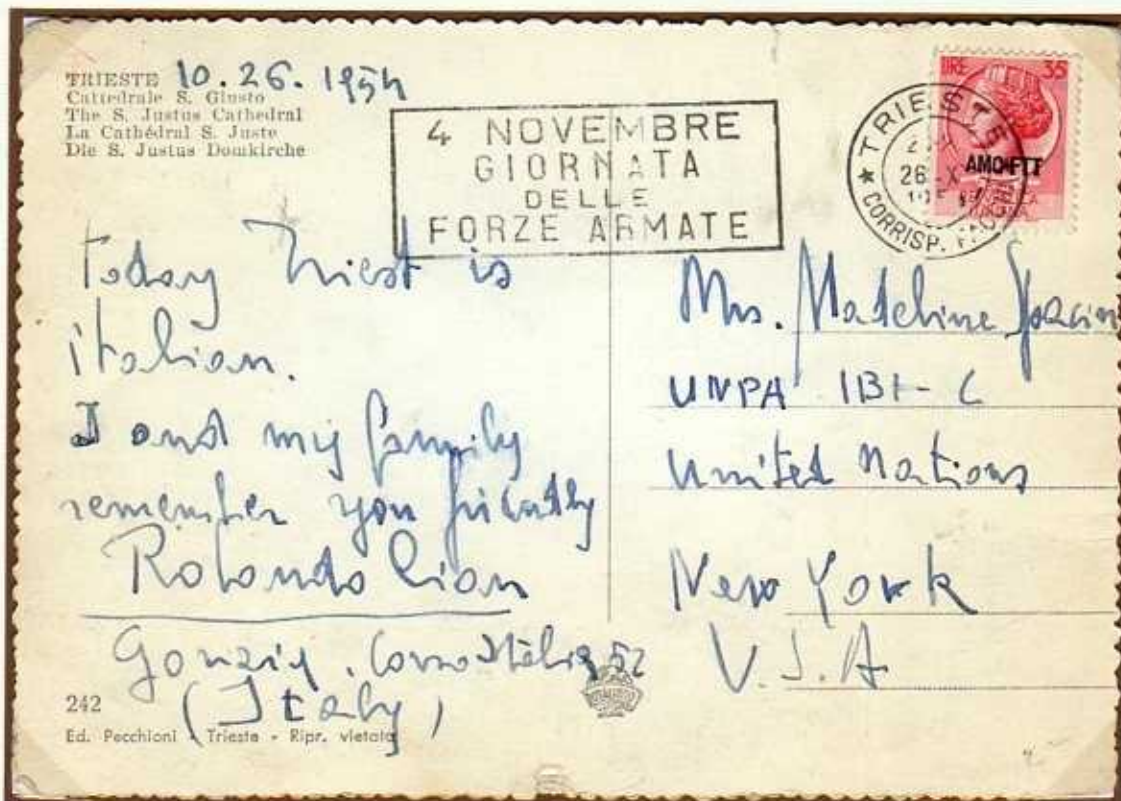 TRIESTE 10.26.1954
Cattedrale S. Giusto
The S. Justus Cathedral
La Cathédral S. Juste
Die S. Justus Domkirche
4 NOVEMBRE
GIORNATA
DELLE
FORZE ARMATE
LIRE 35
AMG-FTT
TRIESTE
26 X
CORRISP.
today Triest is
italian.
I and my family
remember you
Rolando Cian
Gorizia. Corso Italia 52
(Italy)
Mrs. Madeline
UNPA 1B1-C
United Nations
New York
U.S.A
242
Ed. Pecchioni - Trieste - Ripr. vietata